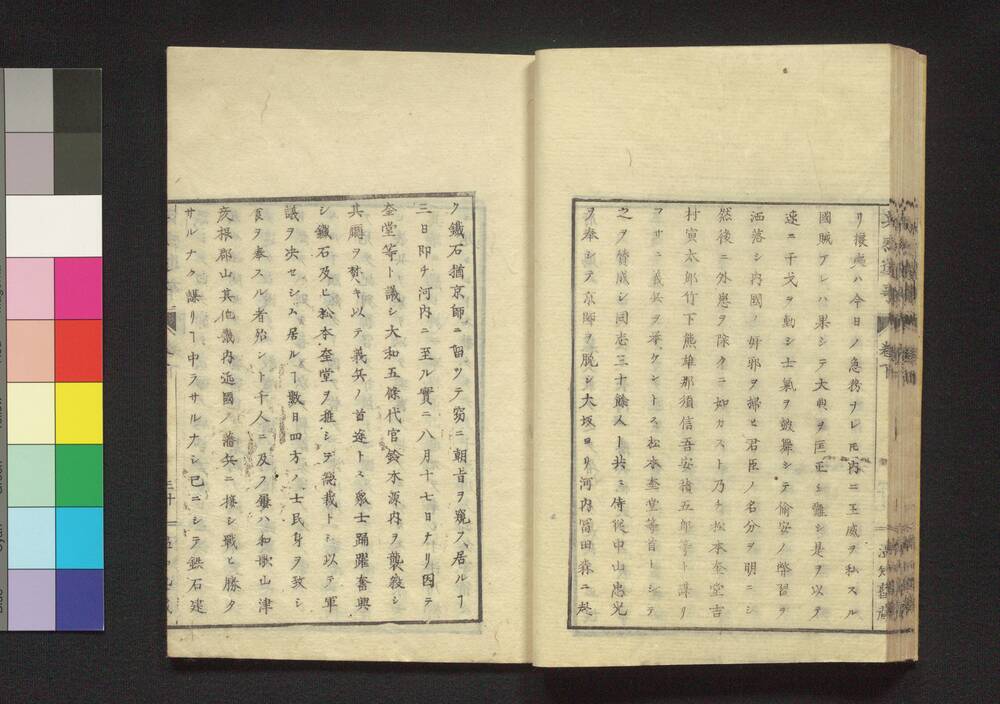 リ攘夷ハ今日ノ急務ナレ𪜈内ニ王威ヲ私スル
國賊アレハ果シテ大典ヲ匡正シ難シ是ヲ以テ
速ニ干戈ヲ動シ士氣ヲ鼓舞シテ偷安ノ弊習ヲ
洒落シ内國ノ奸邪ヲ掃ヒ君臣ノ名分ヲ明ニシ
然後ニ外患ヲ除クニ如カスト乃チ松本奎堂吉
村寅太郎竹下熊雄那須信吾安積五郎等ト謀リ
コヽニ義兵ヲ挙ケントス松本奎堂等首トシテ
之ヲ賛成シ同志三十餘人ト共ニ侍従中山忠光
ヲ奉シテ京師ヲ脱シ大坂ヨリ河内冨田森ニ赴
ク鐵石猶京師ニ留ツテ窃ニ朝旨ヲ窺フ居ルヿ
三日即チ河内ニ至ル實ニ八月十七日ナリ因テ
奎堂等ト議シ大和五條代官鈴木源内ヲ襲殺シ
其廨ヲ焚キ以テ義兵ノ首途トス衆士踊躍奮興
シ鐵石及ヒ松本奎堂ヲ推シヲ総裁トシ以テ軍
議ヲ决セシム居ルヿ數日四方ノ士民身ヲ致シ
食ヲ奉スル者殆ント千人ニ及フ屢ハ和歌山津
彦根郡山其他畿内近國ノ藩兵ニ接シ戰ヒ勝タ
サルナク謀リヿ中ラサルナシ已ニシテ鉄石建
巻下
三十